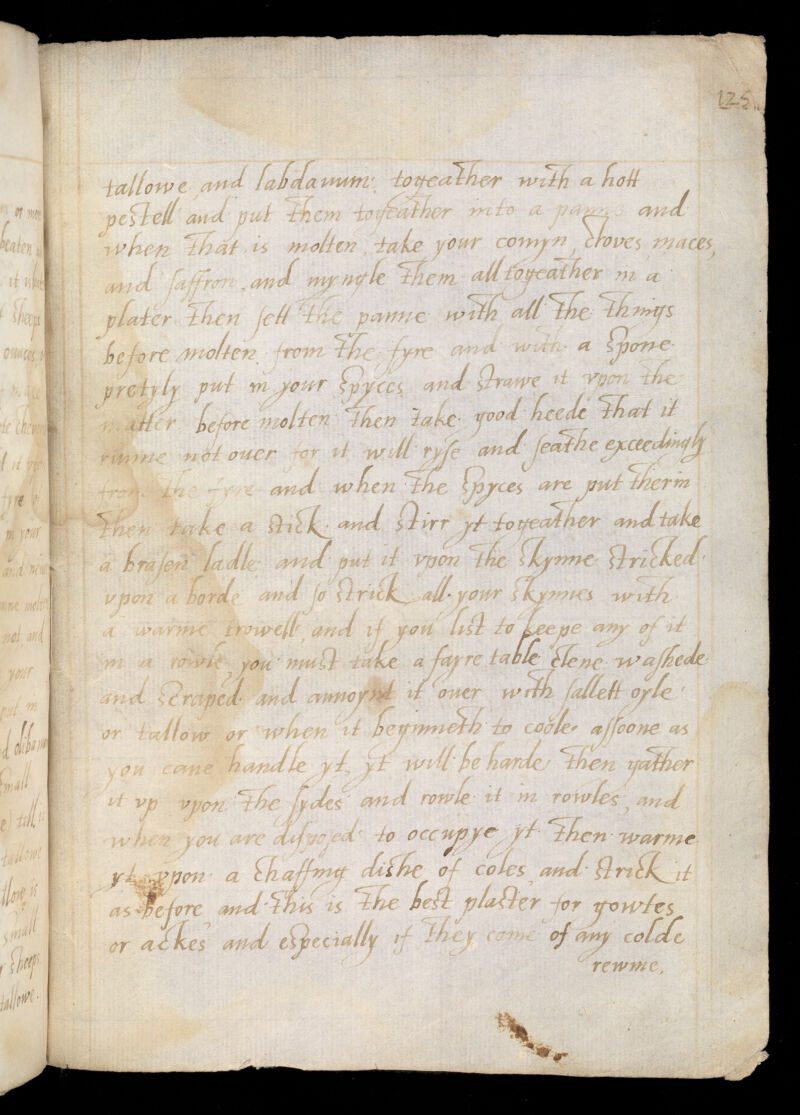 125
tallowe and labdanum: togeather with a hott
pestell and put them togeather into a panne and
when that is molten take your comyn, cloves, maces,
and saffron, and myngle them all togeather in a
plater then sett the panne with all the things
before molten from the fyre and with a spone
pretyly put in your spyces and strawe it vpon the
matter before molten then take good heede that it
runne not over for it will ryse and seathe exceedingly
from the fyre and when the spyces are put therin
then take a stick and stirr yt togeather and take
a brasen ladle and put it vpon the skynne stricked
vpon a borde and so strick all your skynnes with
a warme trowell, and if you list to keepe any of it
in a rowle, you must take a fayre table clene washede
and scraped and annoynt it over with sallett oyle
or tallow or when it beginneth to coole assoone as
you cane handle yt, yt will be harde then gather
it vp vpon the sydes and rowle it in rowles, and
when you are disposed to occupye yt then warme
yt vpon a chaffing dishe of coles and strick it
as before and this is the best plaster for gowtes
or ackes and especially if they come of any colde
rewme.